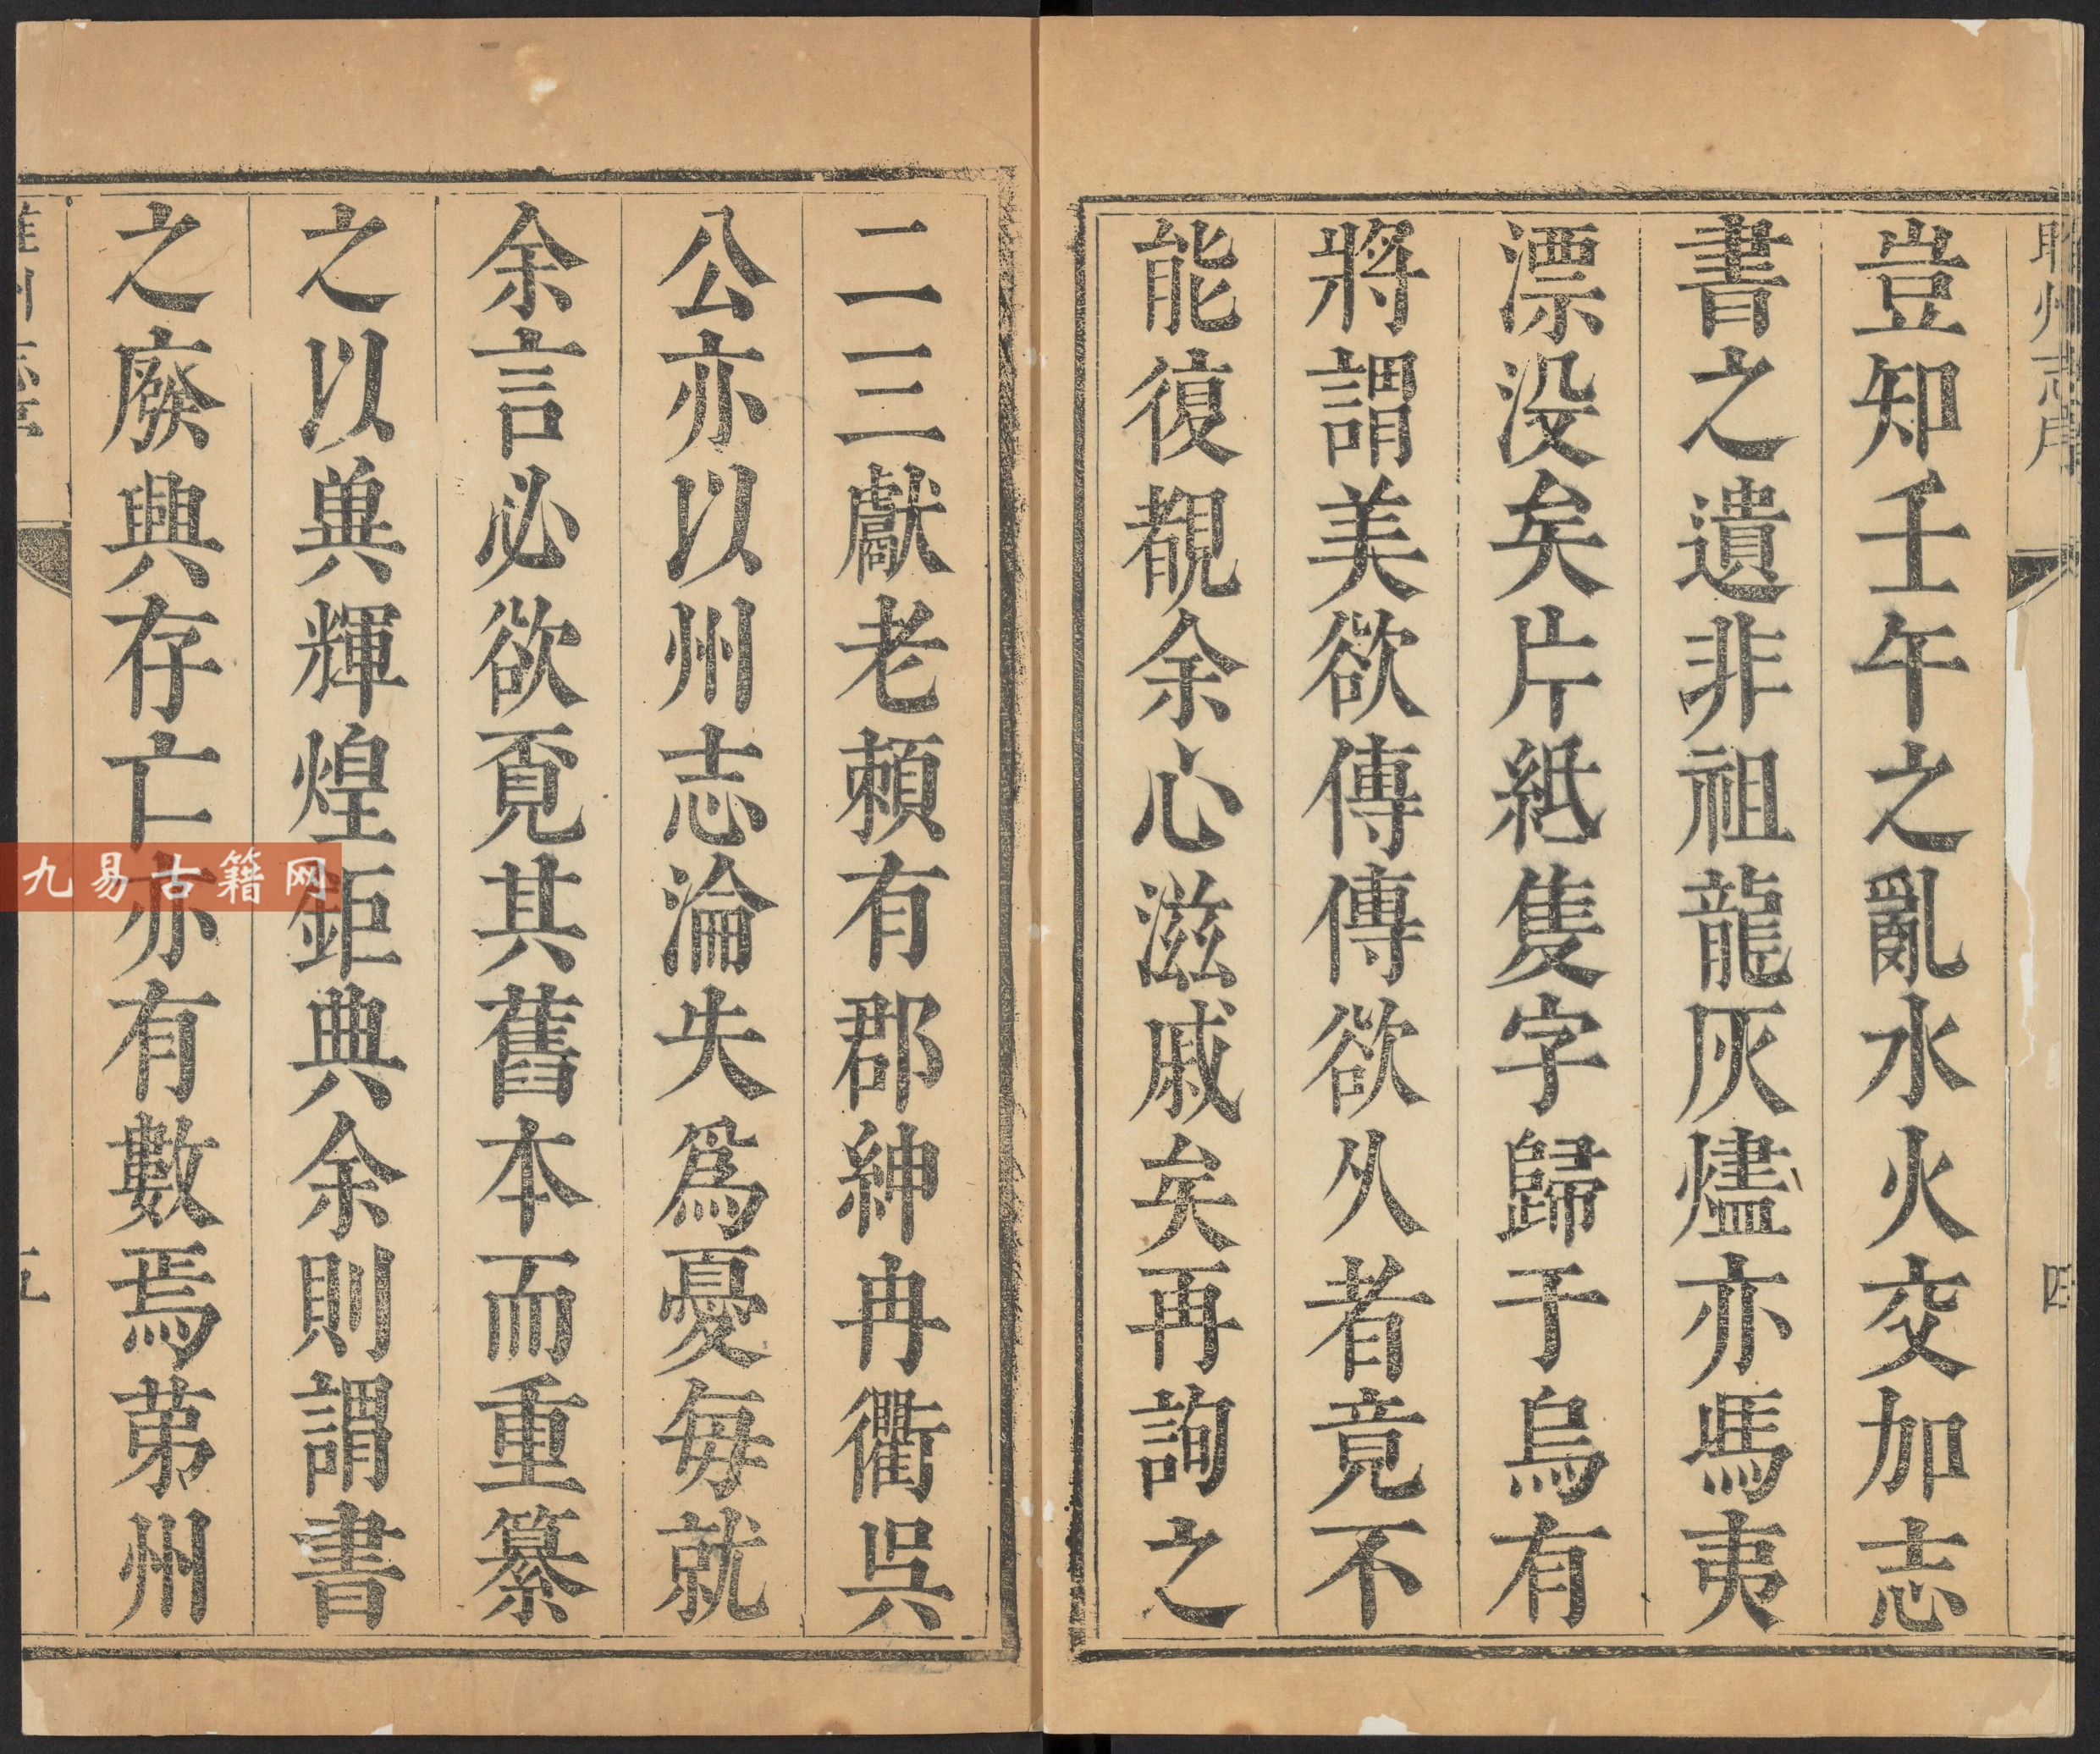 豈知壬午之亂水火交加志
書之遺非祖龍灰燼亦馮夷
漂没矣片紙隻字歸于烏有
將謂美欲傳傳欲久者竟不
能復覩余心滋戚矣再詢之
二三獻老頼有郡紳冉衢吳
公亦以州志淪失爲憂每就
余言必欲覔其舊本而重纂
之以㒷輝煌鉅典余則謂書
之廢興存亡亦有數焉苐州
州志序
四
五
九易古籍网